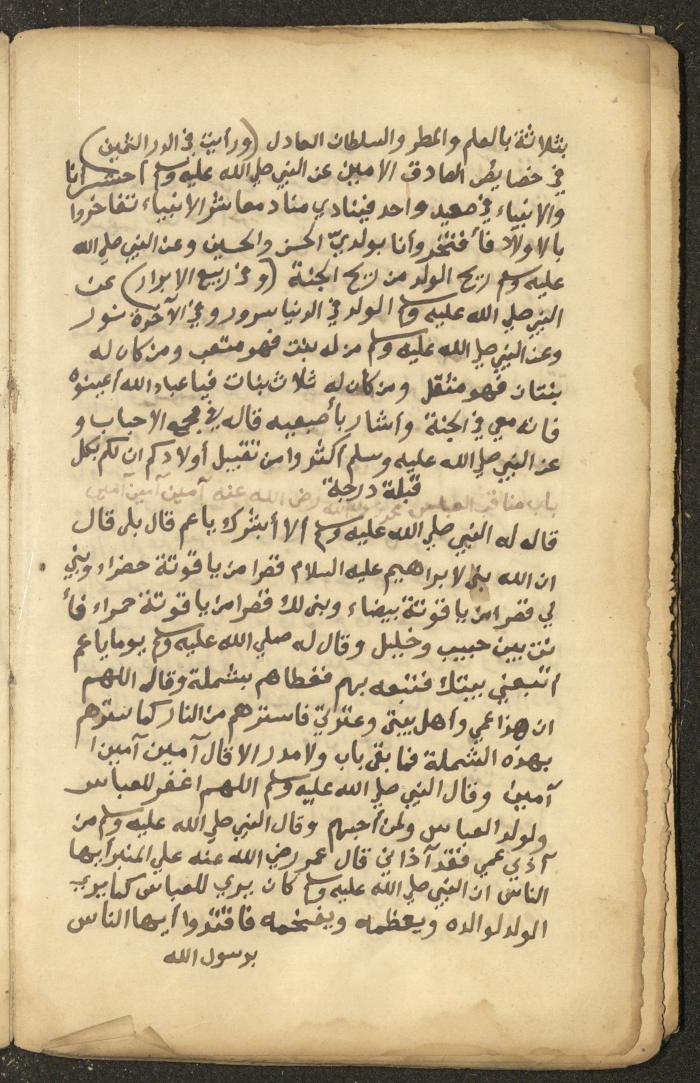 بثلاثة بالعلم والمطر والسلطان العادل (ورأيت في الدر الثمين)
في خصايص الصادق الامين عن النبي صلي الله عليه وسلم احشر انا
والانبياء في صعيد واحد فينادي مناد معاشر الانبياء تفاخروا
بالاولاد فأفتخر وانا بولديّ الحسن والحسين وعن النبي صلي الله
عليه وسلم ريح الولد من ريح الجنة (وفي ربيع الابرار) عن
النبي صلي الله عليه وسلم الولد في الدنيا سرور وفي الآخرة نور
وعن النبي صلي الله عليه وسلم من له بنت فهو متعب ومن كان له
بنتان فهو مثقل ومن كان له ثلاث بنات فيا عباد الله أعينوه
فانه معي في الجنة وأشار بأصبعيه قاله في مجمع الاحباب و
عن النبي صلي الله عليه وسلم أكثروا من تقبيل أولادكم ان لكم بكل
قبلة درجة
باب مناقب العباس رضي الله عنه آمين آمين آمين
قاله له النبي صلي الله عليه وسلم ألا أبشرك يا عم قال بلى قال
ان الله بنى لابراهيم عليه السلام قصرا من ياقوتة خضراء وبني
لي قصرا من ياقوتة بيضاء وبنى لك قصرا من ياقوتة حمراء فأ
نت بين حبيب وخليل وقال له صلي الله عليه وسلم يوما يا عم
أتبعني ببيتك فتبعه بهم فغطاهم بشملة وقال اللهم
ان هذا عمي وأهل بيتي وعترتي فاسترهم من النار كما سترتهم
بهذه الشملة فما بقى باب ولا مدر الا قال آمين آمين ا
آمين وقال النبي صلي الله عليه وسلم اللهم اغفر للعباس
ولولد العباس ولمن أحبهم وقال النبي صلي الله عليه وسلم من
آذى عمي فقد آذاني قال عمر رضي الله عنه علي المنبر أيها
الناس ان النبي صلي الله عليه وسلم كان يري للعباس كما يري
الولد لوالده ويعظمه ويفخمه فاقتدوا أيها الناس
برسول الله